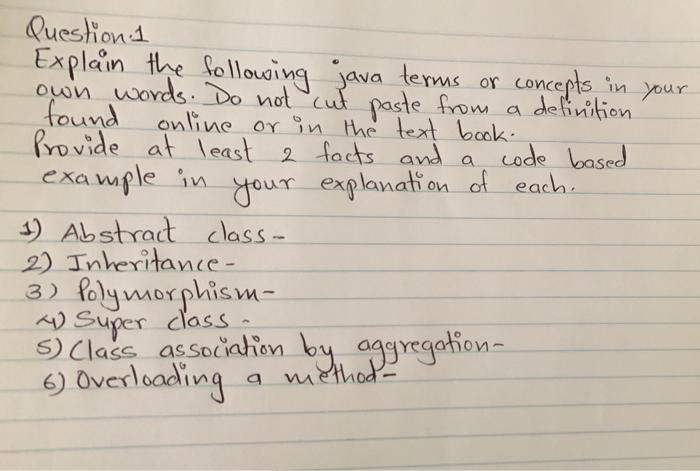 Question.1
Explain the following java terms or concepts in your
own words. Do not cut paste from a definition
found online or in the text book.
Provide at least 2 facts and a code based
example in your explanation of each.
1) Abstract class-
2) Inheritance-
3) Polymorphism-
4) Super class-
5) Class association by aggregation-
6) Overloading a method-